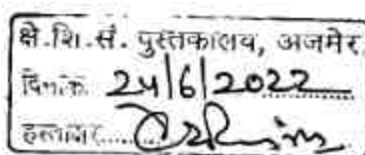 क्षे.शि.सं. पुस्तकालय, अजमेर
दिनांक 24/6/2022
हस्ताक्षर......